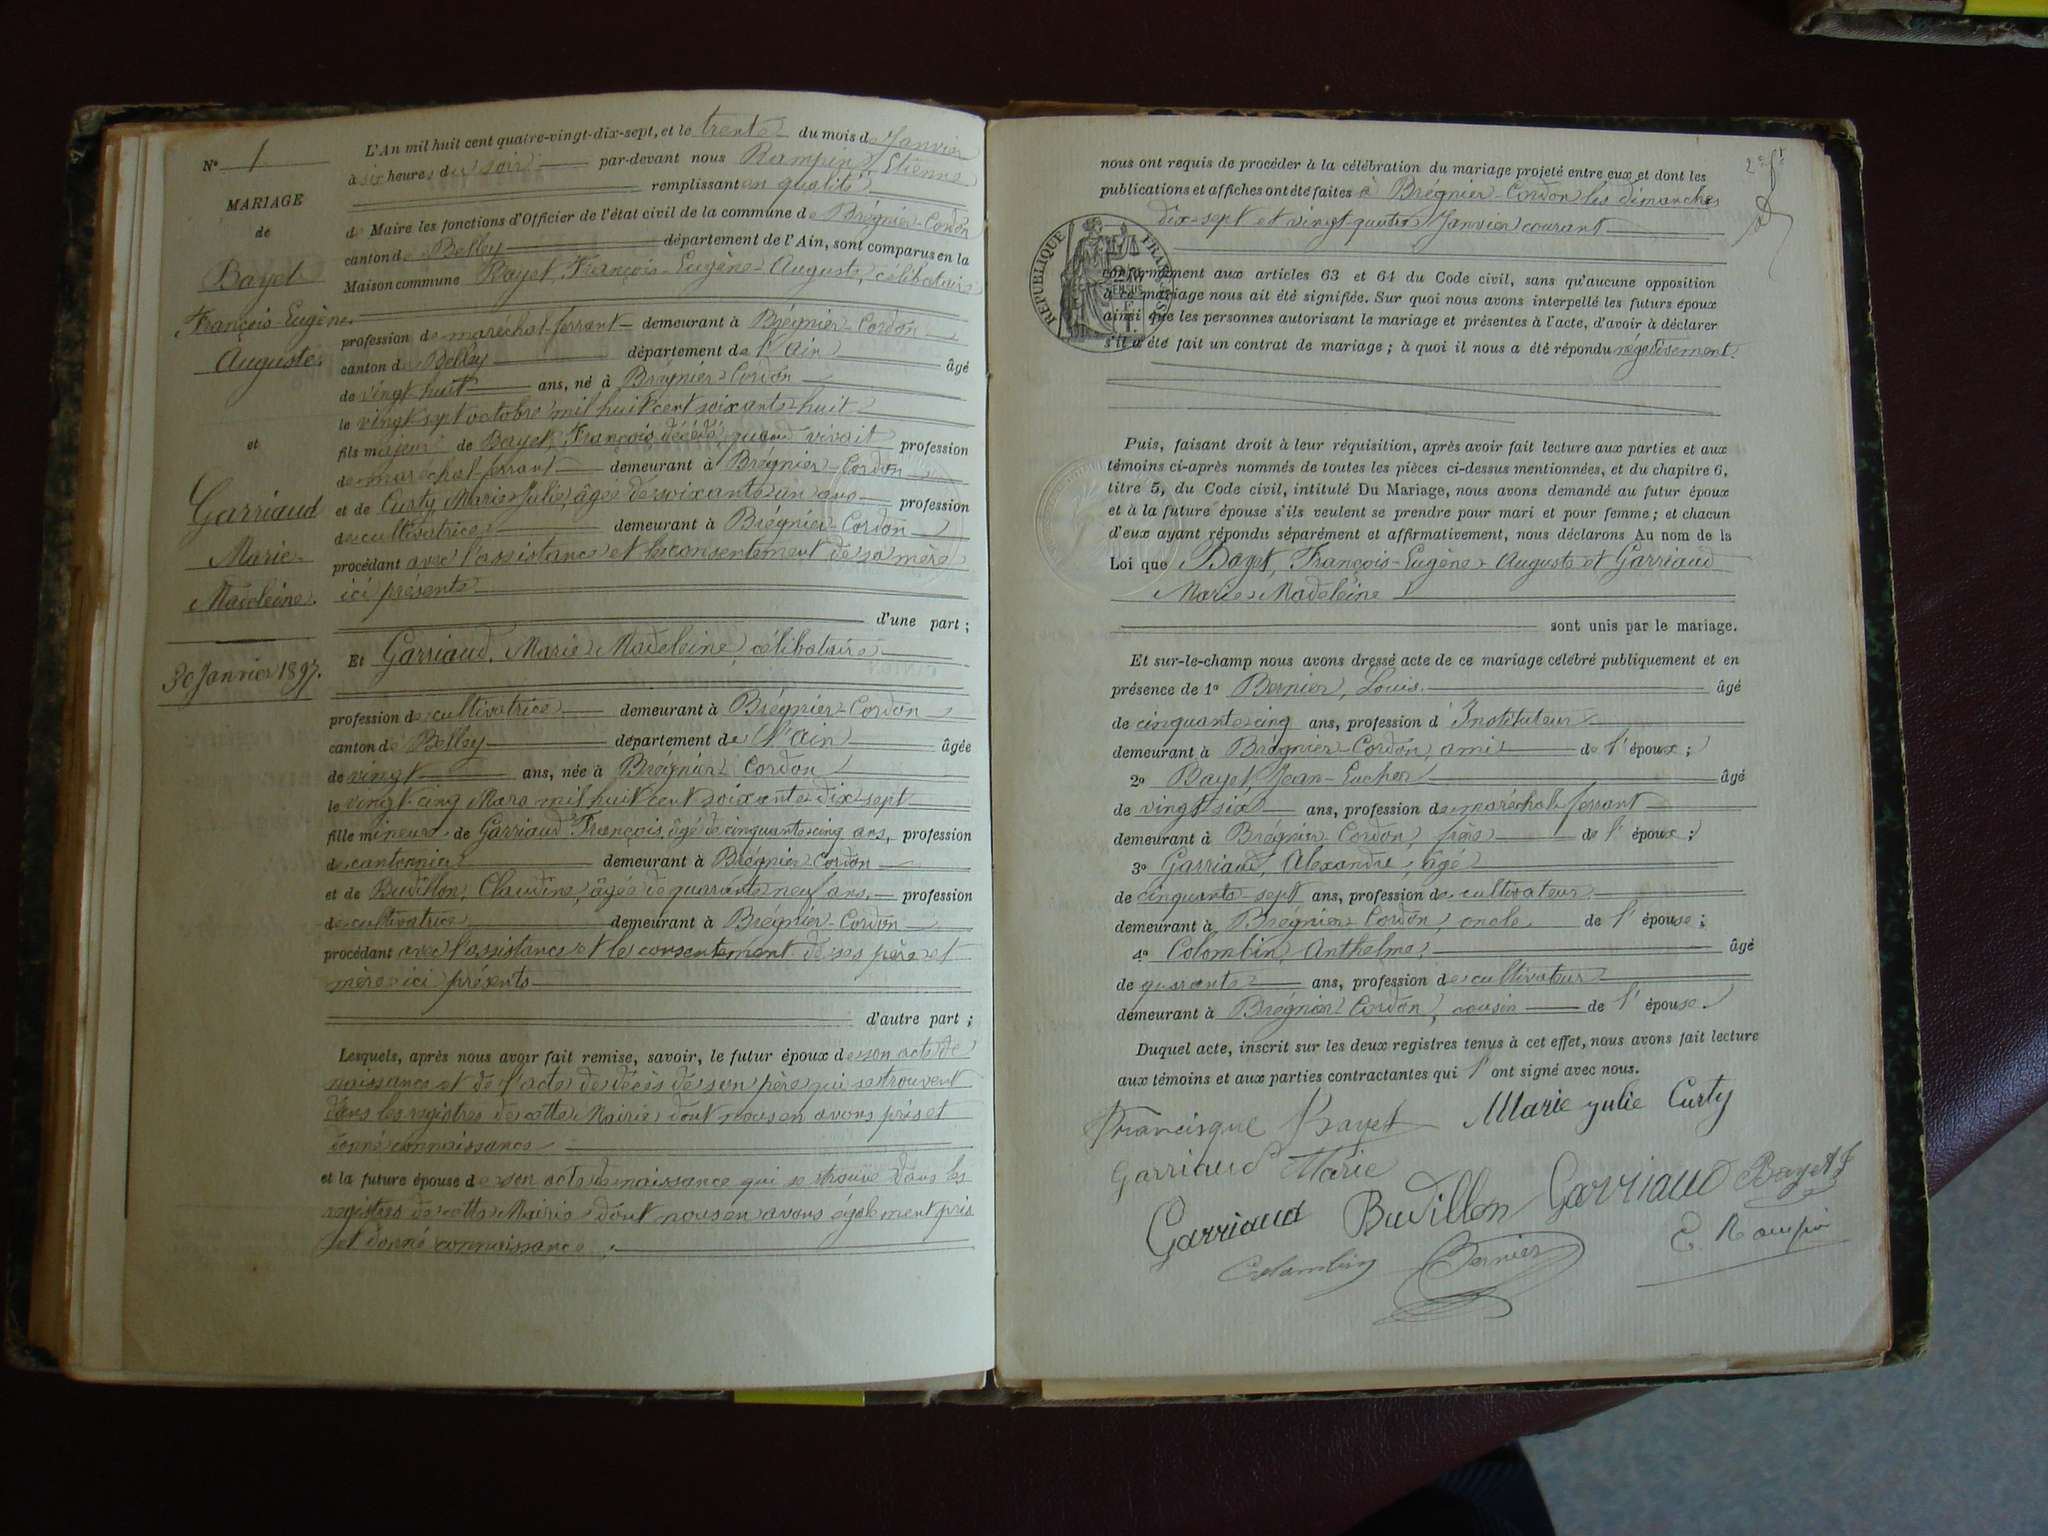 N° 1
MARIAGE
de
Bayet
François-Eugène
Auguste
et
Garriaud
Marie
Madeleine.
30 Janvier 1897.
L'An mil huit cent quatre-vingt-dix-sept, et le trente du mois de Janvier
à six heures du soir par-devant nous Rampin, Etienne
remplissant en qualité
de Maire les fonctions d'Officier de l'état civil de la commune de Brégnier-Cordon
canton de Belley département de l'Ain, sont comparus en la
Maison commune Bayet, François-Eugène-Auguste, célibataire
profession de maréchal-ferrant demeurant à Brégnier-Cordon
canton de Belley département de l'Ain âgé
de vingt-huit ans, né à Brégnier-Cordon
le vingt-sept octobre mil huit cent soixante-huit
fils majeur de Bayet, François, décédé, quand vivait profession
de maréchal-ferrant demeurant à Brégnier-Cordon
et de Curty, Marie-Julie, âgée de soixante-un ans profession
de cultivatrice demeurant à Brégnier-Cordon
procédant avec l'assistance et le consentement de sa mère
ici présente
d'une part ;
Et Garriaud, Marie Madeleine, célibataire
profession de cultivatrice demeurant à Brégnier-Cordon
canton de Belley département de l'Ain âgée
de vingt ans, née à Brégnier-Cordon
le vingt-cinq Mars mil huit cent soixante-dix-sept
fille mineure de Garriaud François, âgé de cinquante-cinq ans, profession
de cantonnier demeurant à Brégnier-Cordon
et de Budillon, Claudine, âgée de quarante-neuf ans, profession
de cultivatrice demeurant à Brégnier-Cordon
procédant avec l'assistance et le consentement de ses père et
mère ici présents
d'autre part ;
Lesquels, après nous avoir fait remise, savoir, le futur époux de son acte de
naissance et de l'acte de décès de son père qui se trouvent
dans les registres de cette Mairie dont nous en avons pris et
donné connaissance
et la future épouse de son acte de naissance qui se trouve dans les
registres de cette Mairie dont nous en avons également pris
et donné connaissance ;
2e ft
nous ont requis de procéder à la célébration du mariage projeté entre eux et dont les
publications et affiches ont été faites à Brégnier-Cordon les dimanches
dix-sept et vingt-quatre Janvier courant
REPUBLIQUE FRANCAISE
conformément aux articles 63 et 64 du Code civil, sans qu'aucune opposition
à ce mariage nous ait été signifiée. Sur quoi nous avons interpellé les futurs époux
ainsi que les personnes autorisant le mariage et présentes à l'acte, d'avoir à déclarer
s'il a été fait un contrat de mariage ; à quoi il nous a été répondu négativement
Puis, faisant droit à leur réquisition, après avoir fait lecture aux parties et aux
témoins ci-après nommés de toutes les pièces ci-dessus mentionnées, et du chapitre 6,
titre 5, du Code civil, intitulé Du Mariage, nous avons demandé au futur époux
et à la future épouse s'ils veulent se prendre pour mari et pour femme ; et chacun
d'eux ayant répondu séparément et affirmativement, nous déclarons Au nom de la
Loi que Bayet, François-Eugène-Auguste et Garriaud
Marie Madeleine
sont unis par le mariage.
Et sur-le-champ nous avons dressé acte de ce mariage célébré publiquement et en
présence de 1° Bernier, Louis. âgé
de cinquante-cinq ans, profession d'Instituteur
demeurant à Brégnier-Cordon, ami de l'époux ;
2° Bayet, Jean-Eucher âgé
de vingt-six ans, profession de maréchal-ferrant
demeurant à Brégnier-Cordon, frère de l'époux ;
3° Garriaud, Alexandre, âgé
de cinquante-sept ans, profession de cultivateur
demeurant à Brégnier-Cordon, oncle de l'épouse ;
4° Colombin, Anthelme, âgé
de quarante ans, profession de cultivateur
demeurant à Brégnier-Cordon, cousin de l'épouse.
Duquel acte, inscrit sur les deux registres tenus à cet effet, nous avons fait lecture
aux témoins et aux parties contractantes qui l'ont signé avec nous.
Francisque Bayet Marie julie Curty
Garriaud Marie
Garriaud Budillon Garriaud Bayet J
Colombin Bernier E. Rampin